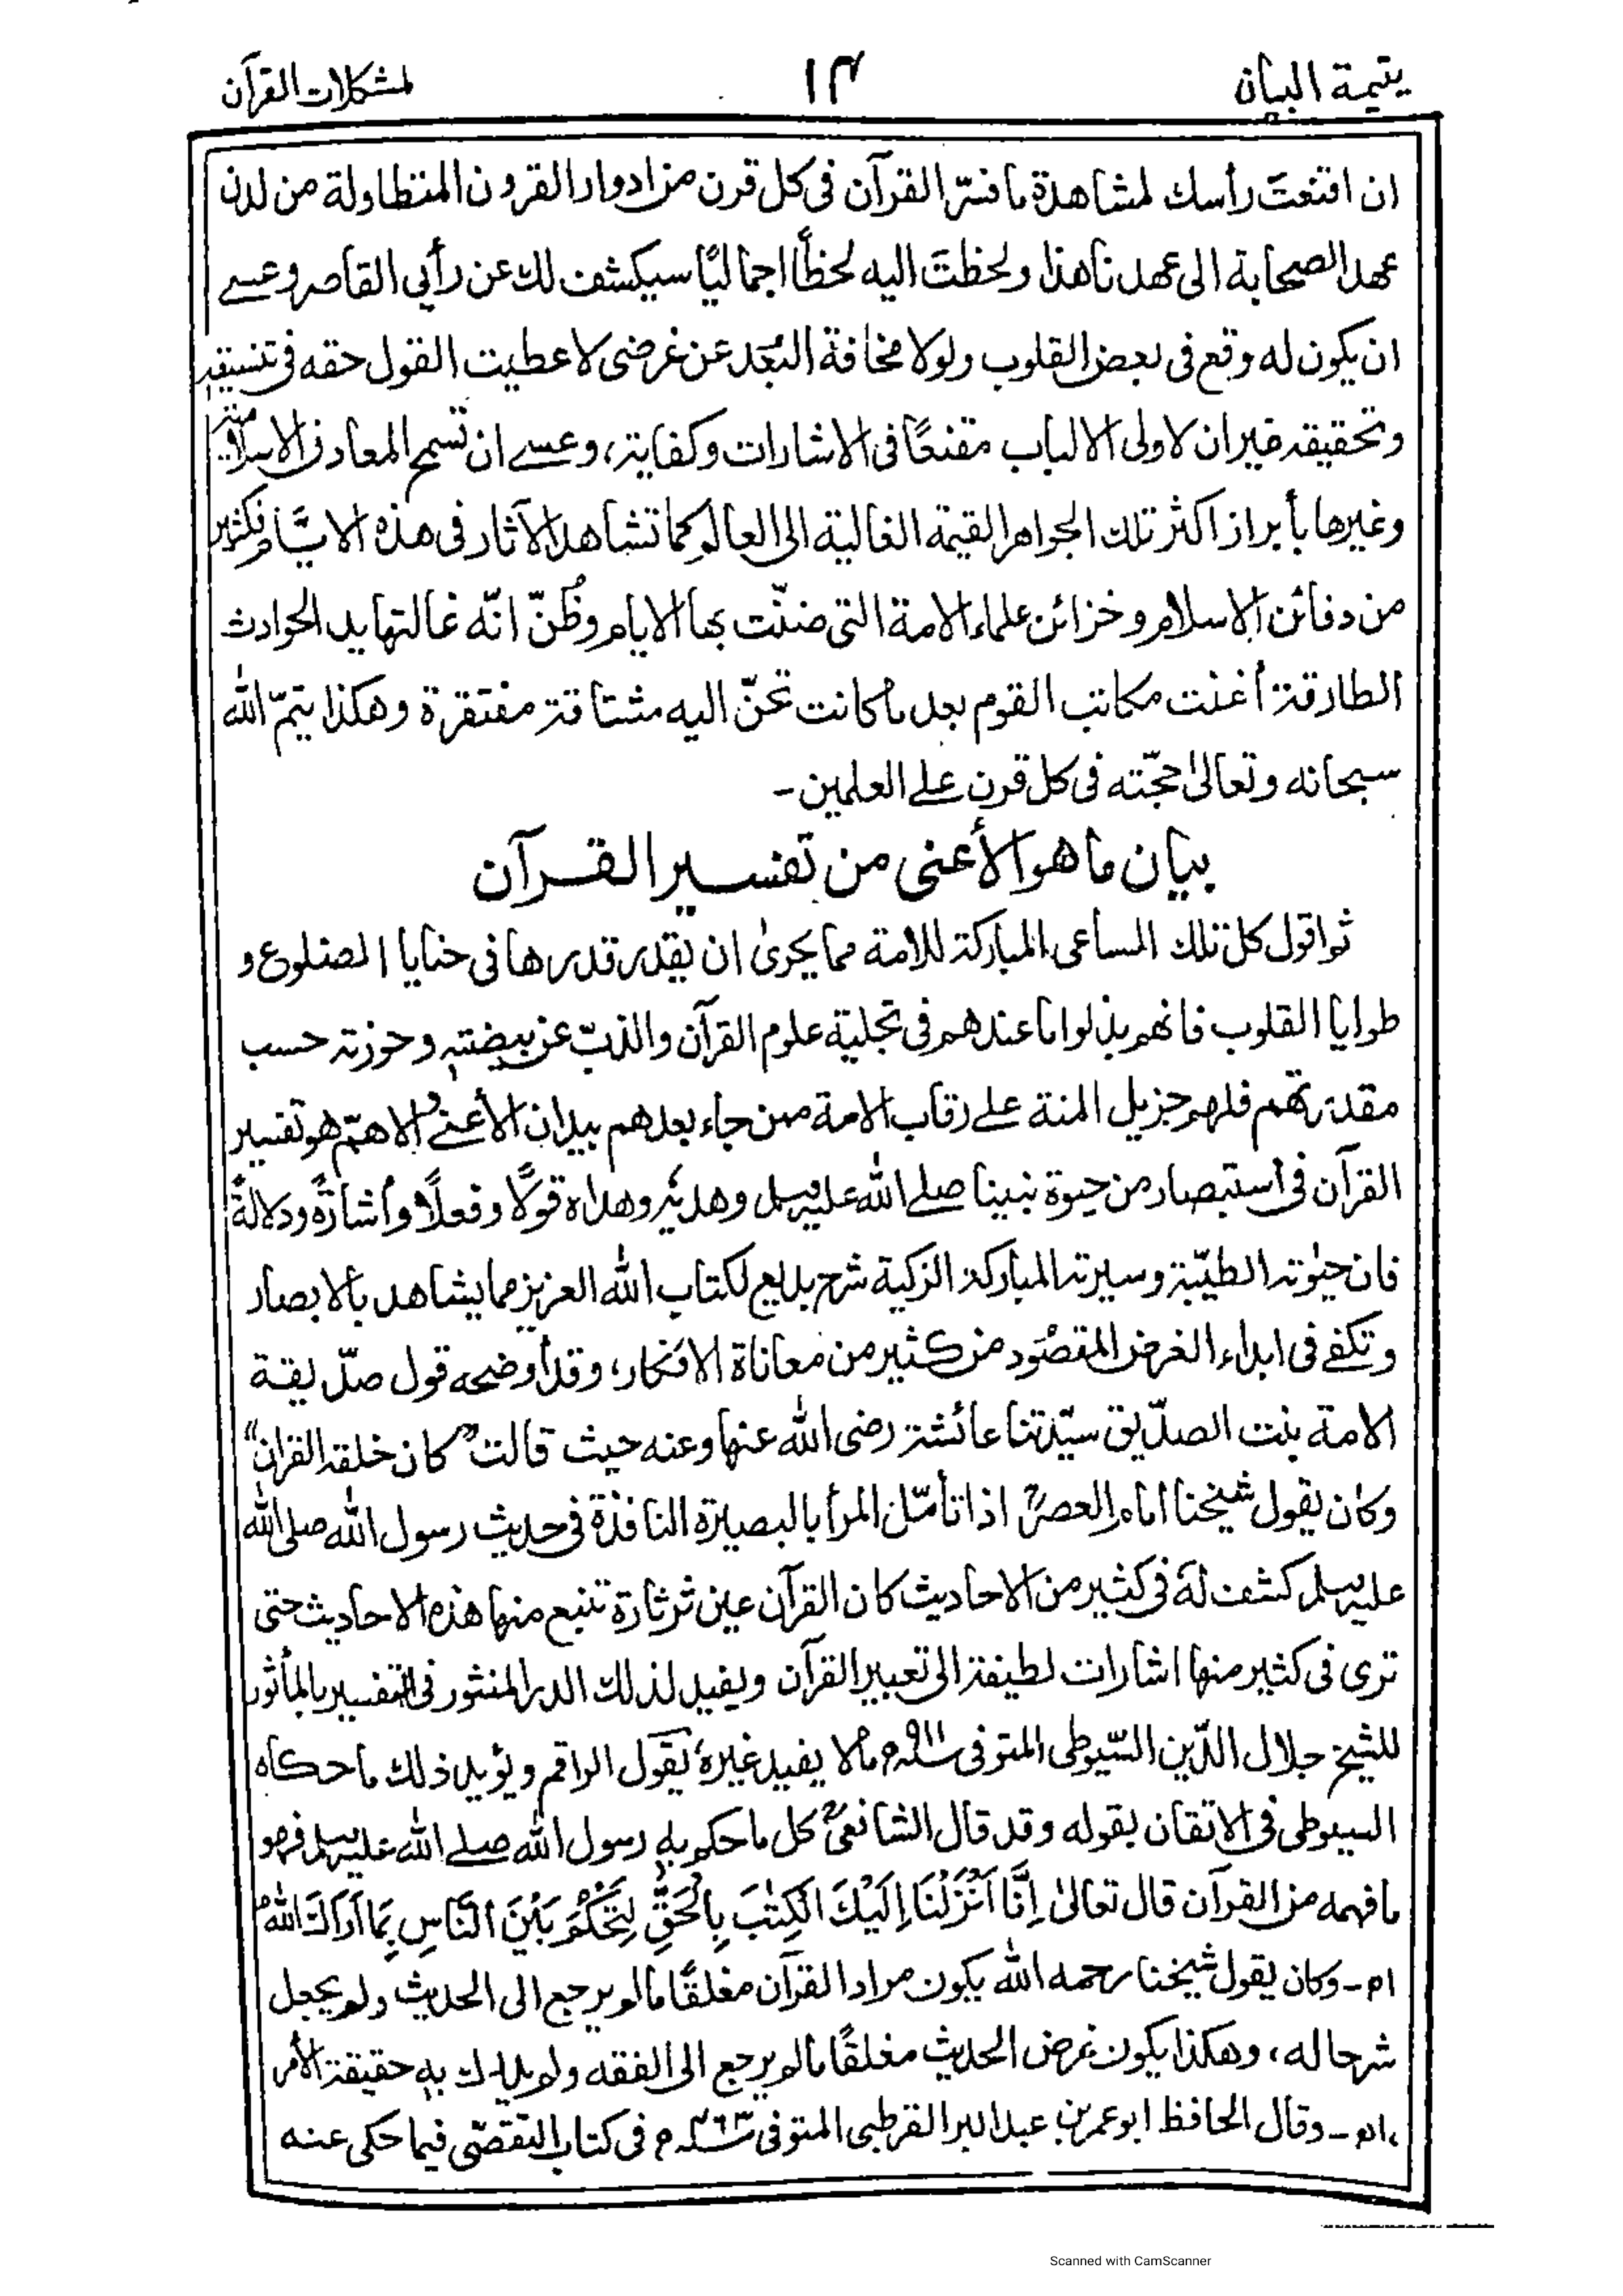 يتيمة البيان
١٤
لمشكلات القرآن
ان اقنعتَ رأسك لمشاهدة ما فسّر القرآن فى كل قرن من ادوار القرون المتطاولة من لدن
عهد الصحابة الى عهدنا هذا ولحظتَ اليه لحظاً اجماليًا سيكشف لك عن رأيى القاصر وعسے
ان يكون له وقع فى بعض القلوب ولولا مخافة البُعد عن غرضى لاعطيت القول حقه فى تنسيقه
وتحقيقه غير ان لاولى الالباب مقنعًا فى الاشارات وكفاية، وعسے ان تسمح المعارف الاسلامية
وغيرها بأبراز اكثر تلك الجواهر القيمة الغالية الى العالم كما تشاهد الآثار فى هذه الايام فكثير
من دفائن الاسلام وخزائن علماء الامة التى ضنّت بها الايام وظُنّ انّه غالتها يد الحوادث
الطارقة أغنت مكاتب القوم بعد ما كانت تحنّ اليه مشتاقة مفتقرة وهكذا يتمّ الله
سبحانه وتعالىٰ حجّته فى كل قرن علے العلمين ـ
بيان ما هو الأعنى من تفسير القرآن
ثم اقول كل تلك المساعى المباركة للامة مما يحرىٰ ان يقدر قدرها فى حنايا الضلوع و
طوايا القلوب فانهم بذلوا ما عندهم فى تجلية علوم القرآن والذبّ عن بيضته وحوزته حسب
مقدرتهم فلهم جزيل المنة علے رقاب الامة ممن جاء بعدهم بيد ان الأعنے والاهمّ هو تفسير
القرآن فى استبصار من حيوة نبينا صلے الله عليه وسلم وهديه وهداه قولًا وفعلًا وأشارةً ودلالةً
فان حيٰوته الطيّبة وسيرته المباركة الزكية شرح بديع لكتاب الله العزيز مما يشاهد بالابصار
وتكفے فى ابداء الغرض المقصُود من كثير من معاناة الافكار، وقد أوضحه قول صدّيقة
الامة بنت الصدّيق سيّدتنا عائشة رضى الله عنها وعنه حيث قالت "كان خلقه القران"
وكان يقول شيخنا امام العصرؒ اذا تأمّل المرأ بالبصيرة النافذة فى حديث رسول الله صلى الله
عليه وسلم كشف لهَ فى كثير من الاحاديث كان القرآن عين ثرثارة تنبع منها هذه الاحاديث حتى
ترى فى كثير منها اشارات لطيفة الى تعبير القرآن ويفيد لذلك الدر المنثور فى التفسير بالمأثور
للشيخ جلال الدّين السّيوطى المتوفى سنه ٩١١ھ م مالا يفيد غيره، يقول الراقم ويؤيد ذلك ما حكاه
السيوطى فى الاتقان بقوله وقد قال الشافعىؒ كل ما حكم به رسول الله صلے الله عليه وسلم فهو
ما فهمه من القرآن قال تعالىٰ اِنَّا اَنْزَلْنَا اِلَيْكَ الْكِتٰبَ بِالْحَقِّ لِتَحْكُمَ بَيْنَ النَّاسِ بِمَا اَرَاكَ اللهُ
اھ ـ وكان يقول شيخنا رحمه الله يكون مراد القرآن مغلقًا مالم يرجع الى الحديث ولم يجعل
شرحا له، وهكذا يكون غرض الحديث مغلقًا مالم يرجع الى الفقه ولم يدرك به حقيقة الأمر
اھ ـ وقال الحافظ ابو عمر بن عبد البر القرطبى المتوفى سنه ٤٦٣ھ م فى كتاب التقصّى فيما حكى عنه
Scanned with CamScanner